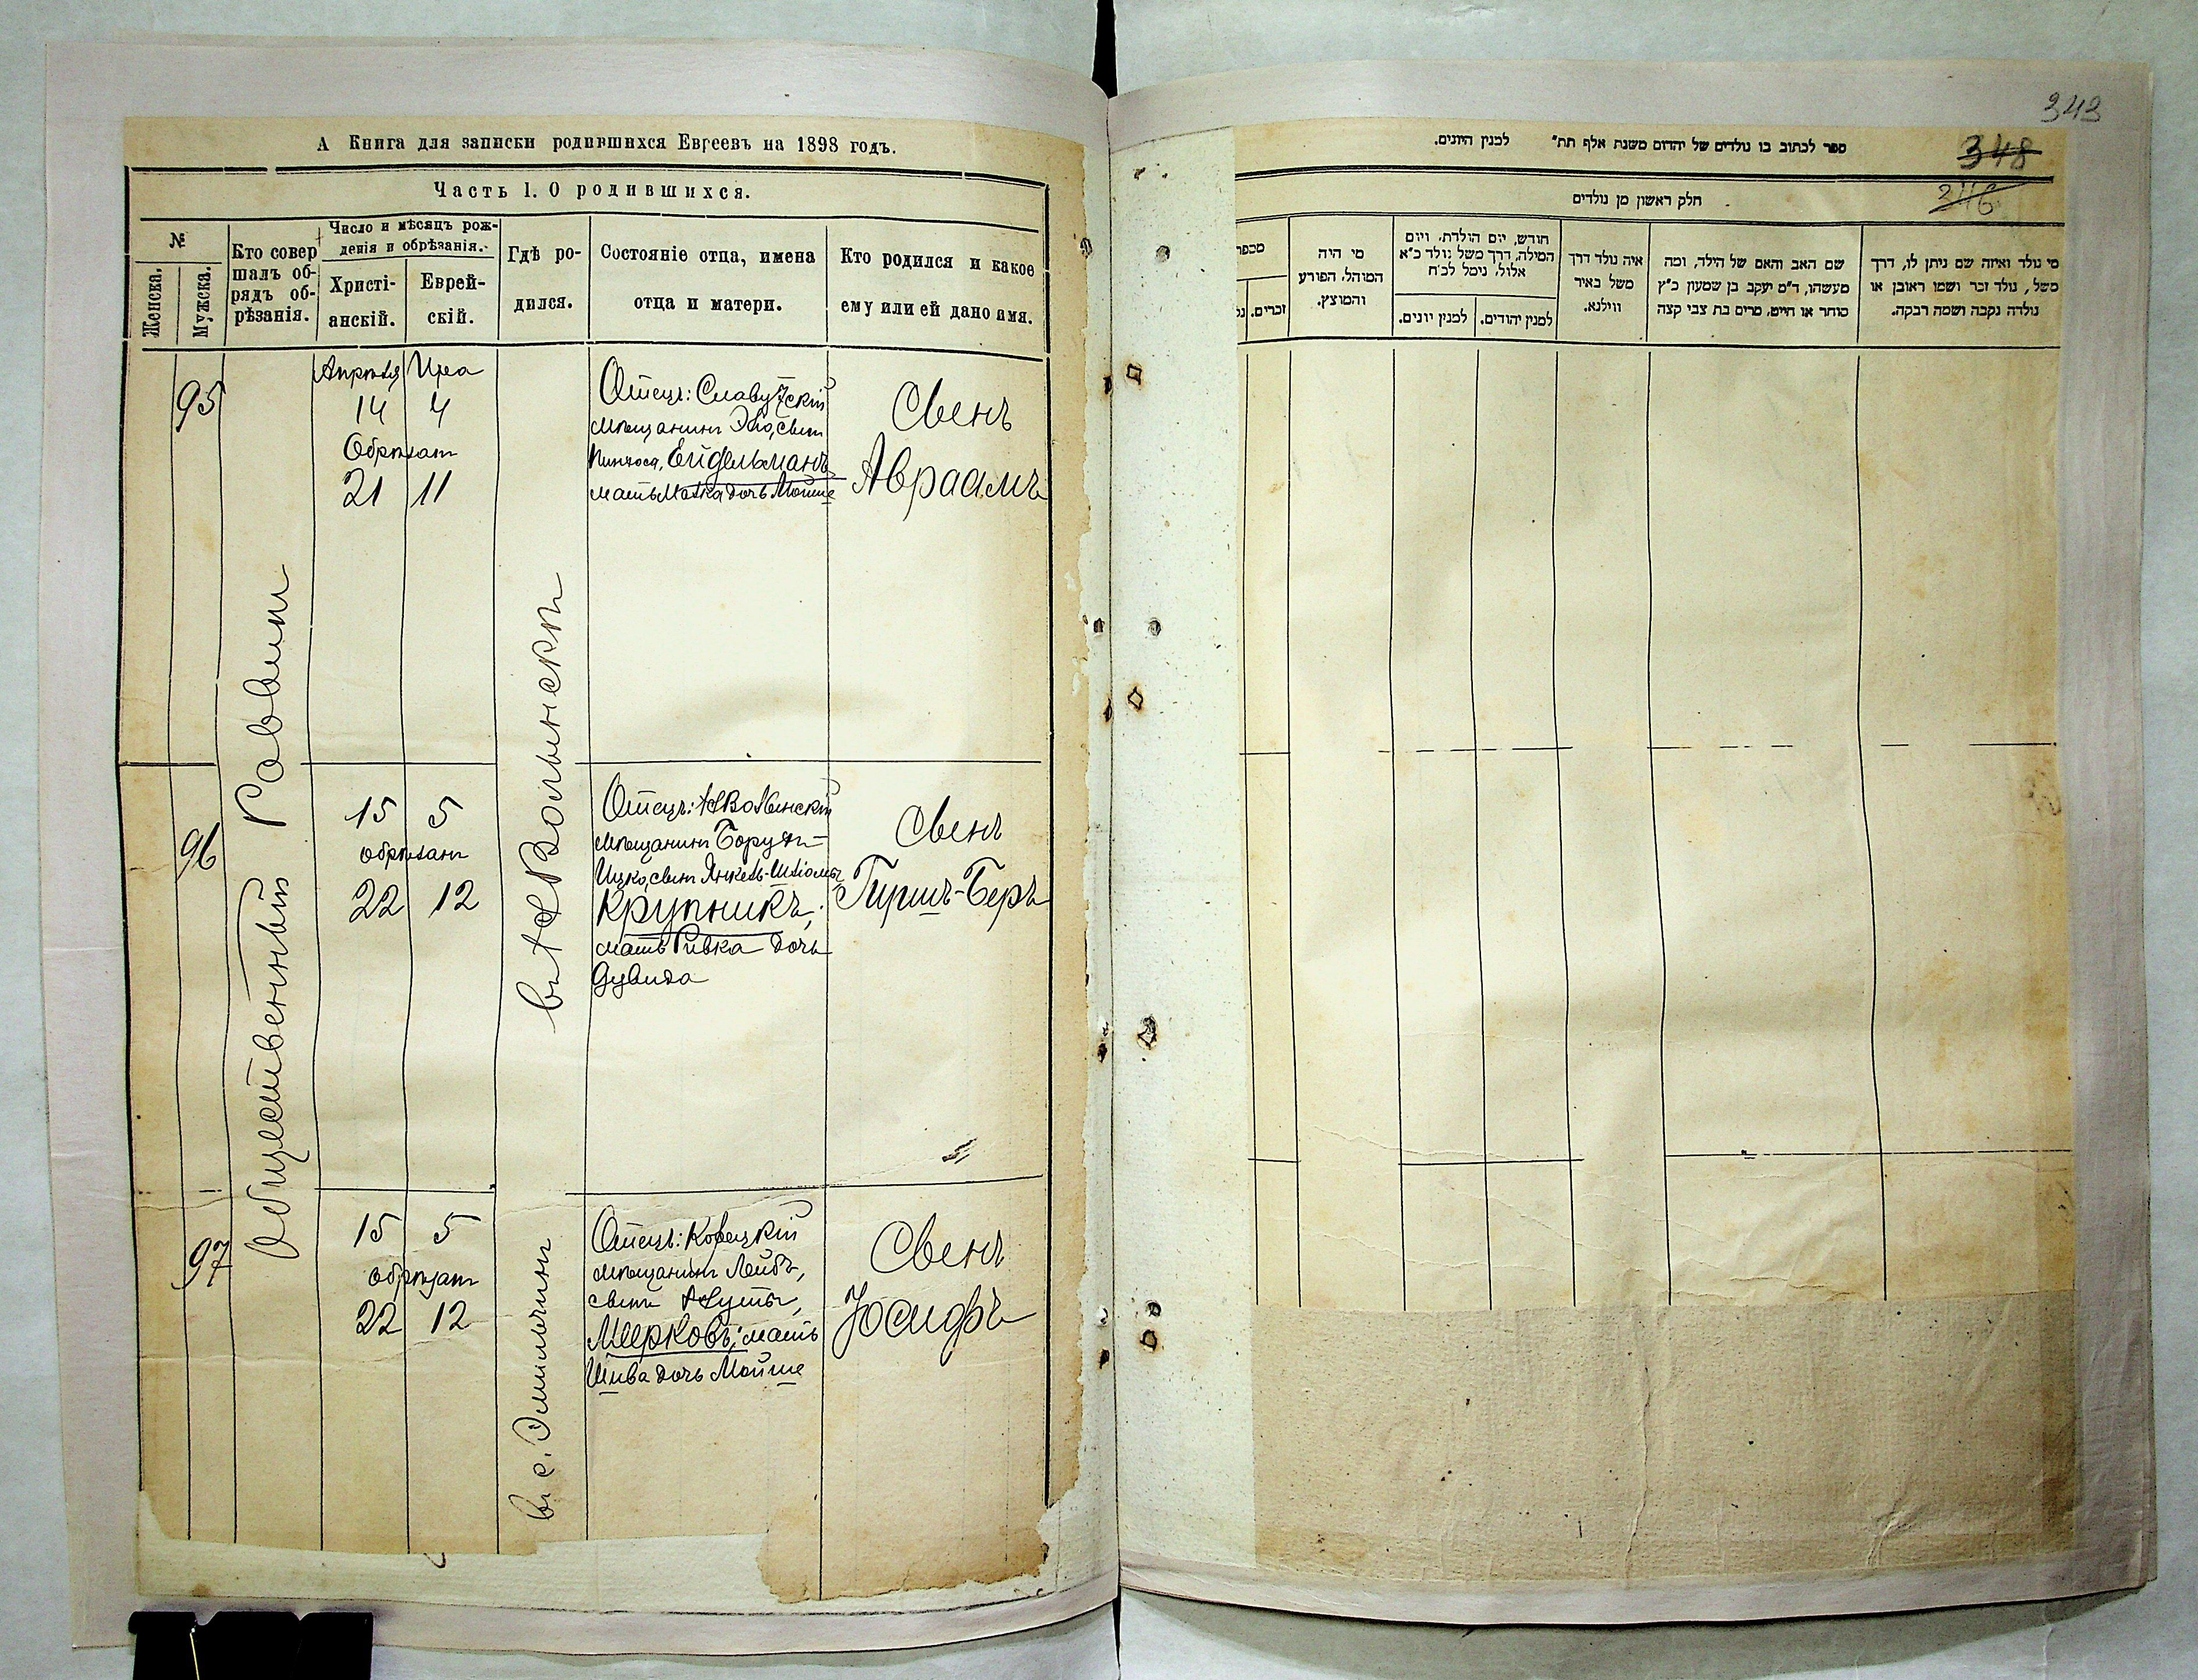 А Книга для записки родившихся Евреевъ на 1898 годъ.
Часть 1. О родившихся.
№
Женска.
Мужска.
Кто совер
шалъ об-
рядъ об-
рѣзанія.
Число и мѣсяцъ рож-
денія и обрѣзанія.
Христі-
анскій.
Еврей-
скій.
Гдѣ ро-
дился.
Состояніе отца, имена
отца и матери.
Кто родился и какое
ему или ей дано имя.
Общественный Раввинъ
въ НВолынскѣ
95
Апрѣля Ира
14 4
Обрѣзанъ
21 11
Отецъ: Славутскій
мѣщанинъ сынъ
Пинхоса, Ейдельманъ
мать дочь Мойше
Сынъ
Авраамъ
96
15 5
обрѣзанъ
22 12
Отецъ: НВолынскій
мѣщанинъ Борухъ-
Ицко, сынъ Янкель-Шліомы
Крупникъ,
мать Ривка дочь
Дувида
Сынъ
Гиршъ-Беръ
97
15 5
обрѣзанъ
22 12
въ с. Эмильчинѣ
Отецъ: Корецкій
мѣщанинъ Лейбъ,
сынъ
Мееровъ; мать
Шива дочь Мойше
Сынъ
Іосифъ
343
348
346
ספר לכתוב בו נולדים של יהודים משנת אלף תת״ למנין היונים.
חלק ראשון מן נולדים
מספר
זכרים.
מי היה
המוהל, הפורע
והמוצץ.
חודש, יום הולדת, ויום
המילה, דרך משל נולד כ״א
אלול, נימל לכ״ח
למנין יונים.
למנין יהודים.
איה נולד דרך
משל באיר
ווילנא.
שם האב והאם של הילד, ומה
מעשהו, ד״מ יעקב בן שמעון כ״ץ
סוחר או חייט, מרים בת צבי קצה
מי נולד ואיזה שם ניתן לו, דרך
משל, נולד זכר ושמו ראובן או
נולדה נקבה ושמה רבקה.